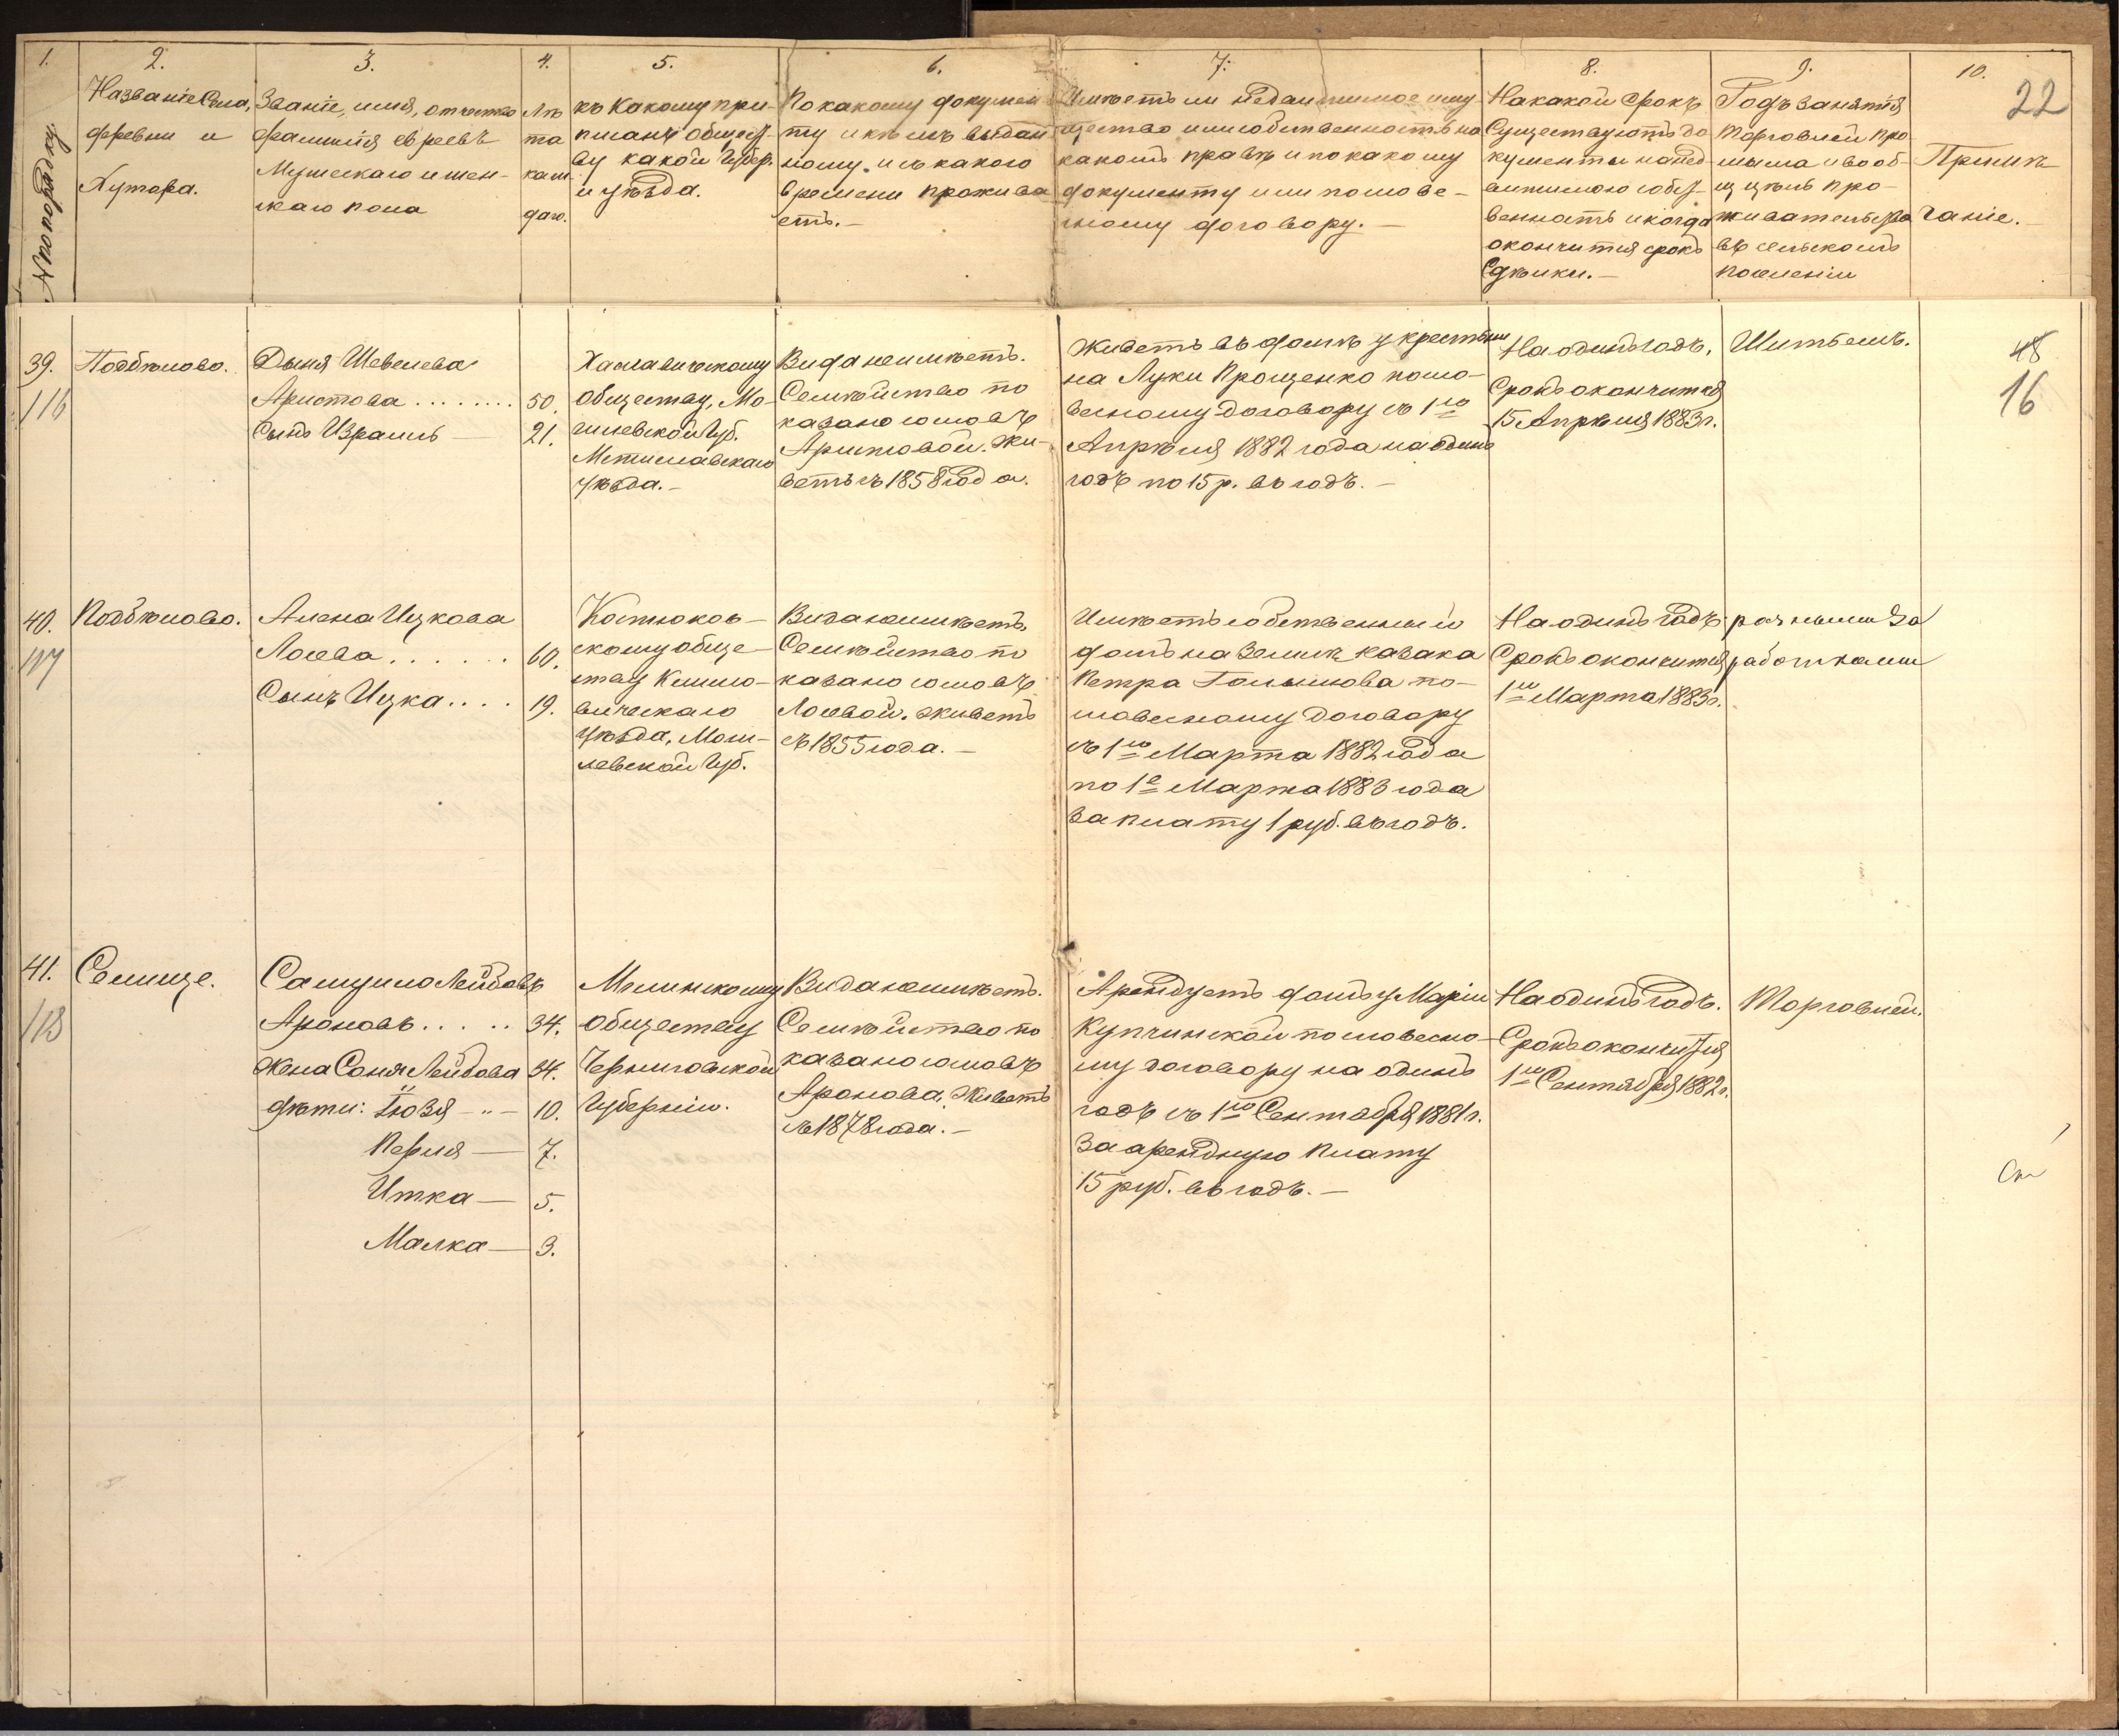 1.
№ по порядку.
2.
Названіе Села,
деревни и
Хутора.
3.
Званіе, имя, отчество
фамилія евреевъ
Мужескаго и жен-
скаго пола
4.
Лѣ
та
каж
даго.
5.
къ Какому при-
писанъ общест-
ву какой Губер.
и уѣзда.
6.
По какому докумен
ту и кѣмъ выдан
ному и съ какого
времени прожива
етъ.-
7.
Имѣетъ ли недвижимое иму
щество или собственность на
какомъ правѣ и по какому
документу или по слове-
сному договору.-
8.
На какой срокъ
Существуютъ до
кументы на нед
вижимою собст-
венность и когда
окончится срокъ
Сдѣлки.-
9.
Родъ занятія
торговлей про
мысла и вооб-
ще цѣль про-
живательства
въ сельскомъ
поселеніи
10.
22
Примѣ
чаніе.
39.
116
Подбѣлово.
Дыня Шевелева
Аристова ........ 50.
Сынъ Израиль — 21.
Хаславическому
Обществу, Мо-
гилевской Губ.
Мстиславскаго
уѣзда.-
Вида неимѣетъ.
Семѣйство по
казано сословъ
Аристовой. Жи-
ветъ съ 1858 года.
Живетъ въ домѣ у крестьяни
на Луки Прощенко по сло-
весному договору съ 1го
Апрѣля 1882 года на одинъ
годъ по 15 р. въ годъ.-
На одинъ годъ,
Срокъ окончится
15 Апрѣля 1883 г.
Шитьемъ.
48
16
40.
117
Подбѣлово.
Алена Ицкова
Лосева ...... 60.
Сынъ Ицка .... 19.
Костюков-
скому обще-
ству Климо-
вическаго
уѣзда, Моги-
левской Губ.
Вида неимѣетъ,
Семѣйство по
казано сословъ
Лосевой. живетъ
съ 1855 года.-
Имѣетъ собственный
домъ на Землѣ казака
Петра Голышова по-
словесному договору
съ 1го Марта 1882 года
по 1е Марта 1883 года
за плату 1 руб. въ годъ.
На одинъ годъ.
Срокъ окончится
1го Марта 1883 г.
разными за
работками
41.
118
Селище.
Самуило Лейбовъ
Ароновъ ..... 34.
Жена Соня Лейбова 34.
дѣти: Гюзя -"- 10.
Перля — 7.
Итка — 5.
Малка — 3.
Мглинскому
Обществу
Черниговской
Губерніи.
Вида неимѣетъ.
Семѣйство по
казано сословъ
Аронова. Живетъ
съ 1878 года.-
Арендуетъ домъ у Маріи
Купчинской по словесно-
му договору на одинъ
годъ съ 1го Сентября 1881 г.
За арендную плату
15 руб. въ годъ.-
На одинъ годъ.
Срокъ окончится
1го Сентября 1882 г.
Торговлей.